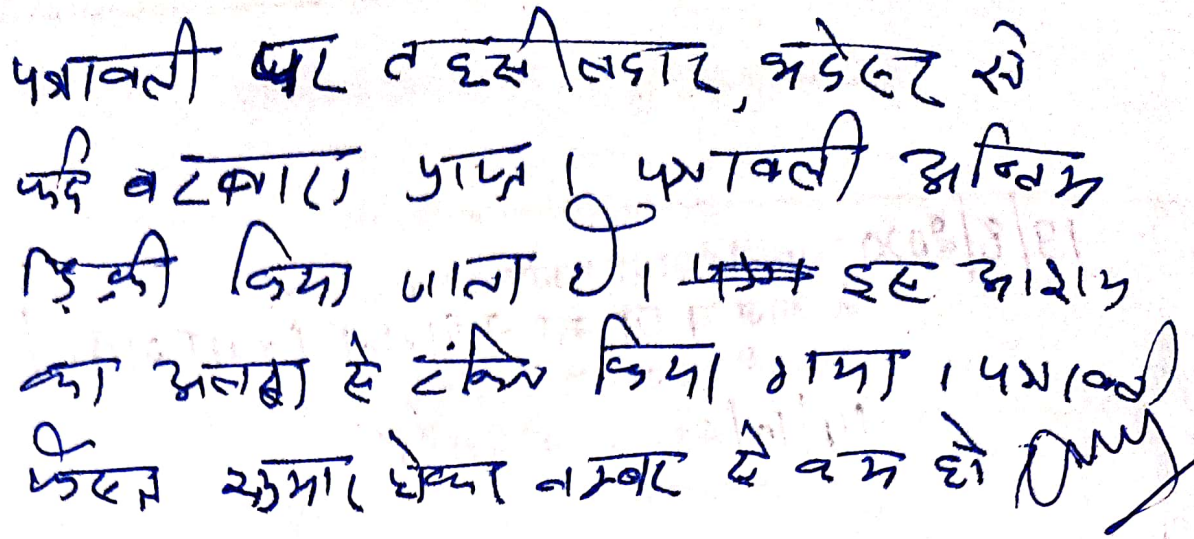 पत्रावली पर तहसीलदार, भदेसर से
फर्द बटवारा प्राप्त । पत्रावली अन्तिम
डिक्री किया जाता है । इस आशय
का अलग से टंकित किया गया । पत्रावली
फैसल शुमार होकर नम्बर से कम हो